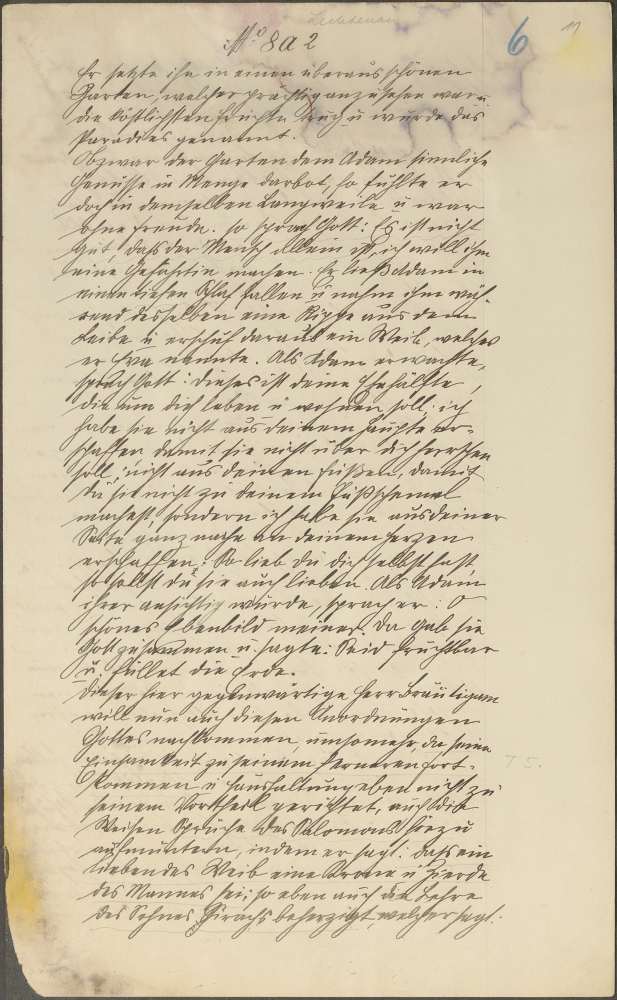 Lechdenau
№ 8a 2
6
11
Er setzte ihn in einen überaus schönen
Garten, welcher prächtig anzusehen war u
die köstlichsten Früchte trug u wurde das
Paradies genannt.
Obzwar der Garten dem Adam sinnliche
Genüsse in Menge darbot, so fühlte er
doch in demselben Langweile u war
ohne Freunde. so sprach Gott: Es ist nicht
gut, dass der Mensch allein ist, ich will ihm
eine Gefährtin machen. Er ließ Adam in
einen tiefen Schlaf fallen, u nahm ihm wäh-
rend desselben eine Rippe aus dem
Leibe u erschuf daraus ein Weib, welches
er Eva nannte. Als Adam erwachte,
sprach Gott: dieses ist deine Ehehälfte,
die um dich leben u wohnen soll; ich
habe sie nicht aus deinem Haupte er-
schaffen damit sie nicht über dich herrschen
soll; nicht aus deinen Füßen, damit
du sie nicht zu deinem Fußschemel
machest, sondern ich habe sie aus deiner
Seite ganz nahe an deinem Herzen
erschaffen: So lieb du dich selbst hast,
so sollst du sie auch lieben. Als Adam
ihrer ansichtig wurde, sprach er: O
schönes Ebenbild meiner. Da gab sie
Gott zusammen u. sagte: Seid fruchtbar
u. füllet die Erde.
Dieser hier gegenwärtige Herr Bräutigam
will nun auch diesen Anordnungen
Gottes nachkommen, umsomehr, da seine
Einsamkeit zu seinem ferneren Fort-
kommen u Haushaltung eben nicht zu
seinem Vortheil gerichtet, auch die
Weisen Sprüche des Salomons hiezu
aufmuntern, indem er sagt: dass ein
liebendes Weib eine Krone u Zierde
des Mannes sei; so eben auch die Lehre
des Sohnes Sirachs beherzigt, welcher sagt: